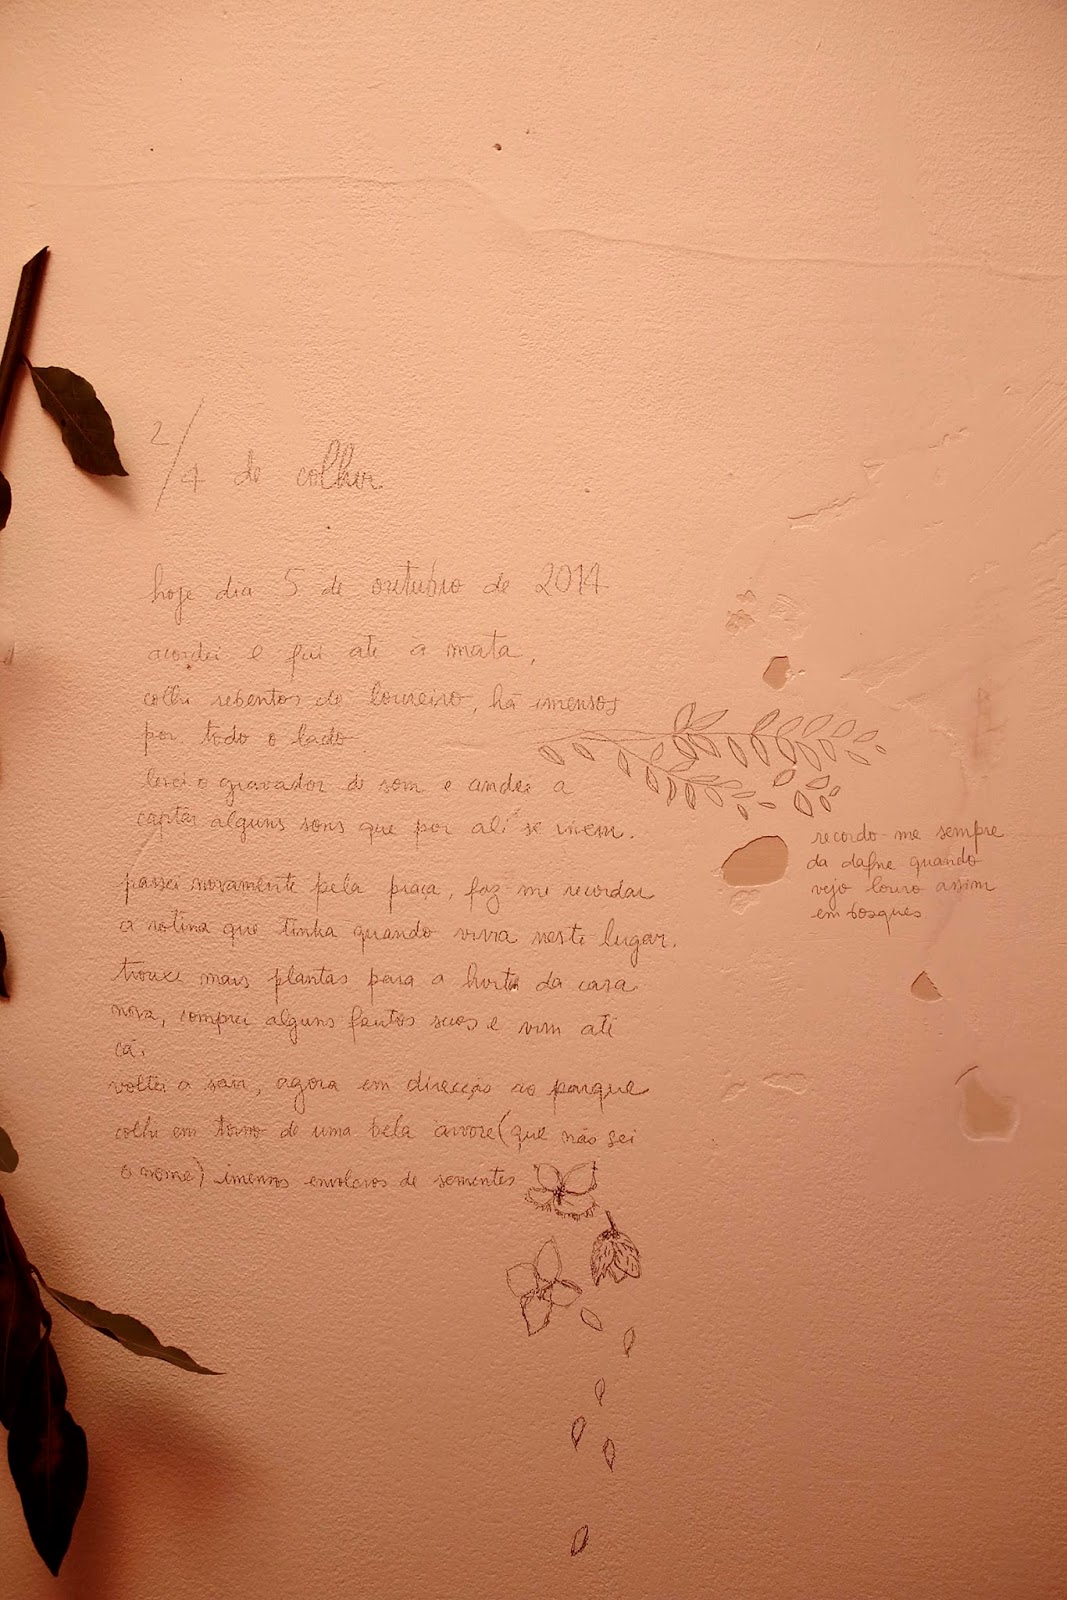 2/4 de colher
hoje dia 5 de outubro de 2014
acordei e fui até à mata,
colhi rebentos de loureiro, há imensos
por todo o lado.
levei o gravador de som e andei a
captar alguns sons que por ali se vivem.
passei novamente pela praça, faz-me recordar
a rotina que tinha quando vivia neste lugar.
trouxe mais plantas para a horta da casa
nova, comprei alguns frutos secos e vim até
cá.
voltei a sair, agora em direcção ao parque
colhi em torno de uma bela árvore (que não sei
o nome) imensos invólucros de sementes
recordo-me sempre
da dafne quando
vejo louro assim
em bosques